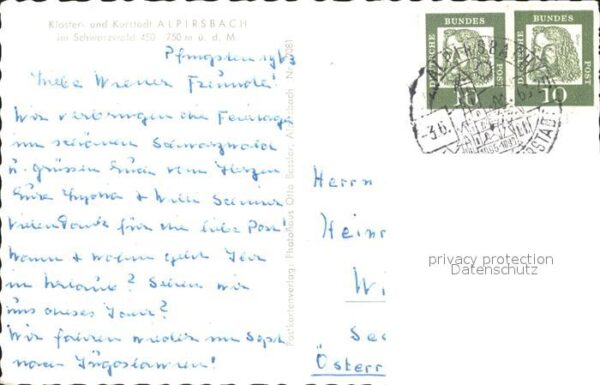 Kloster- und Kurstadt ALPIRSBACH
im Schwarzwald 450 - 750 m ü. d. M.
Pfingsten 1963
Liebe Wiener Freunde!
Wir verbringen die Feiertage
im schönen Schwarzwald
u. grüssen Euch vom Herzen
Eure
Vielen Dank für die liebe Post!
Wann & wohin geht Ihr
in Urlaub? Sehen wir
uns dieses Jahr?
Wir fahren wieder im Sept.
nach Jugoslawien!
Postkartenverlag: Photohaus Otto Bessler, Alpirsbach Nr.
DEUTSCHE BUNDESPOST
10
DEUTSCHE BUNDESPOST
10
ALPIRSBACH
-3.6.
Herrn
Heinr
Wi
Österr
privacy protection
Datenschutz